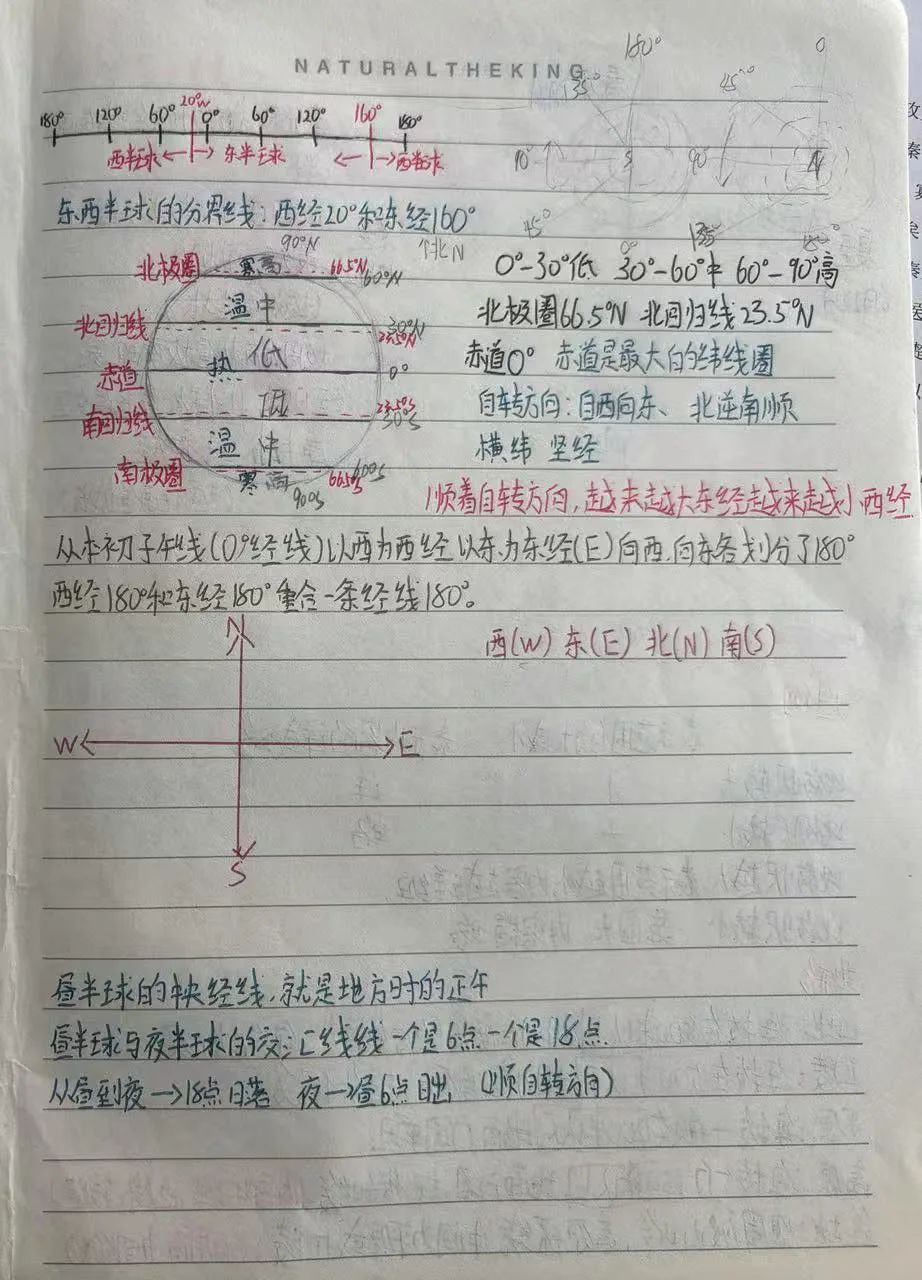 NATURALTHEKING
180°
0
135°
45°
180° 120° 60° 20°W 0° 60° 120° 160° 180°
西半球 东半球 西半球
90°
东西半球的分界线:西经20°和东经160°
45° 0° 135° 180°
90°N 个北N
北极圈 寒高 66.5°N 60°N
0°-30°低 30°-60°中 60°-90°高
温中
北极圈66.5°N 北回归线23.5°N
北回归线 30°N 23.5°N
热 低
赤道 0°
赤道0° 赤道是最大的纬线圈
低
自转方向:自西向东、北逆南顺
南回归线 23.5°S 30°S
温中
横纬 竖经
南极圈 寒高 66.5°S 60°S
90°S
顺着自转方向,越来越大东经越来越小西经
从本初子午线(0°经线)以西为西经以东为东经(E)向西.向东各划分了180°
西经180°和东经180°重合一条经线180°。
西(W) 东(E) 北(N) 南(S)
N
W E
S
昼半球的中央经线,就是地方时的正午
昼半球与夜半球的交汇线线一个是6点一个是18点
从昼到夜→18点日落 夜→昼6点日出 (顺自转方向)